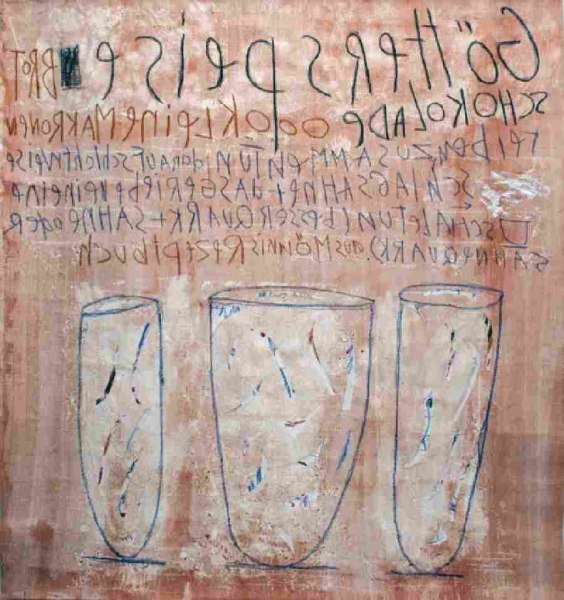 Götterspeise BROT
SCHOKOLADE od KLEiNE MAKRONEN
reiben, ZUSAMMENTUN, darauf schichtweise
SCHLAGSAHNE + dAS GERiEbENE iN EiNE
SCHALE TUN (besser QUARK + SAHNE oder
SAHNEQUARK). (aus MönniS Rezeptbuch